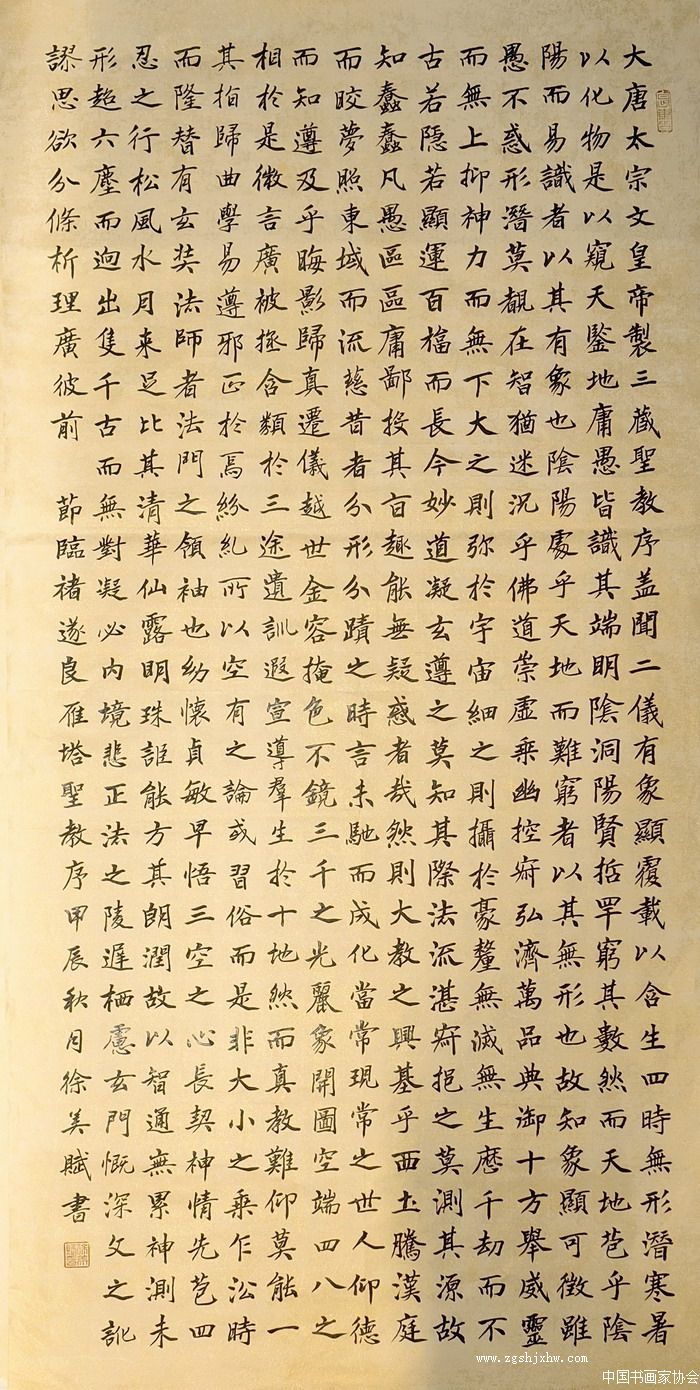 大唐太宗文皇帝製三藏聖教序盖聞二儀有象顯覆載以含生四時無形潛寒暑
以化物是以窺天鑒地庸愚皆識其端明陰洞陽賢哲罕窮其數然而天地苞乎陰
陽而易識者以其有象也陰陽處乎天地而難窮者以其無形也故知象顯可徵雖
愚不惑形潛莫覩在智猶迷況乎佛道崇虛乘幽控寂弘濟萬品典御十方舉威靈
而無上抑神力而無下大之則弥於宇宙細之則攝於豪釐無滅無生歷千劫而不
古若隱若顯運百福而長今妙道凝玄遵之莫知其際法流湛寂挹之莫測其源故
知蠢蠢凡愚區區庸鄙投其旨趣能無疑惑者哉然則大教之興基乎西土騰漢庭
而皎夢照東域而流慈昔者分形分蹟之時言未馳而成化當常現常之世人仰德
而知遵及乎晦影歸真遷儀越世金容掩色不鏡三千之光麗象開圖空端四八之
相於是微言廣被拯含類於三途遺訓遐宣導羣生於十地然而真教難仰莫能一
其指歸曲學易遵邪正於焉紛糺所以空有之論或習俗而是非大小之乘乍沿時
而隆替有玄奘法師者法門之領袖也幼懷貞敏早悟三空之心長契神情先苞四
忍之行松風水月未足比其清華仙露明珠詎能方其朗潤故以智通無累神測未
形超六塵而迥出隻千古而無對凝心內境悲正法之陵遲栖慮玄門慨深文之訛
謬思欲分條析理廣彼前 節臨褚遂良雁塔聖教序甲辰秋月徐美賦書
www.zgshjxhw.com
中国书画家协会